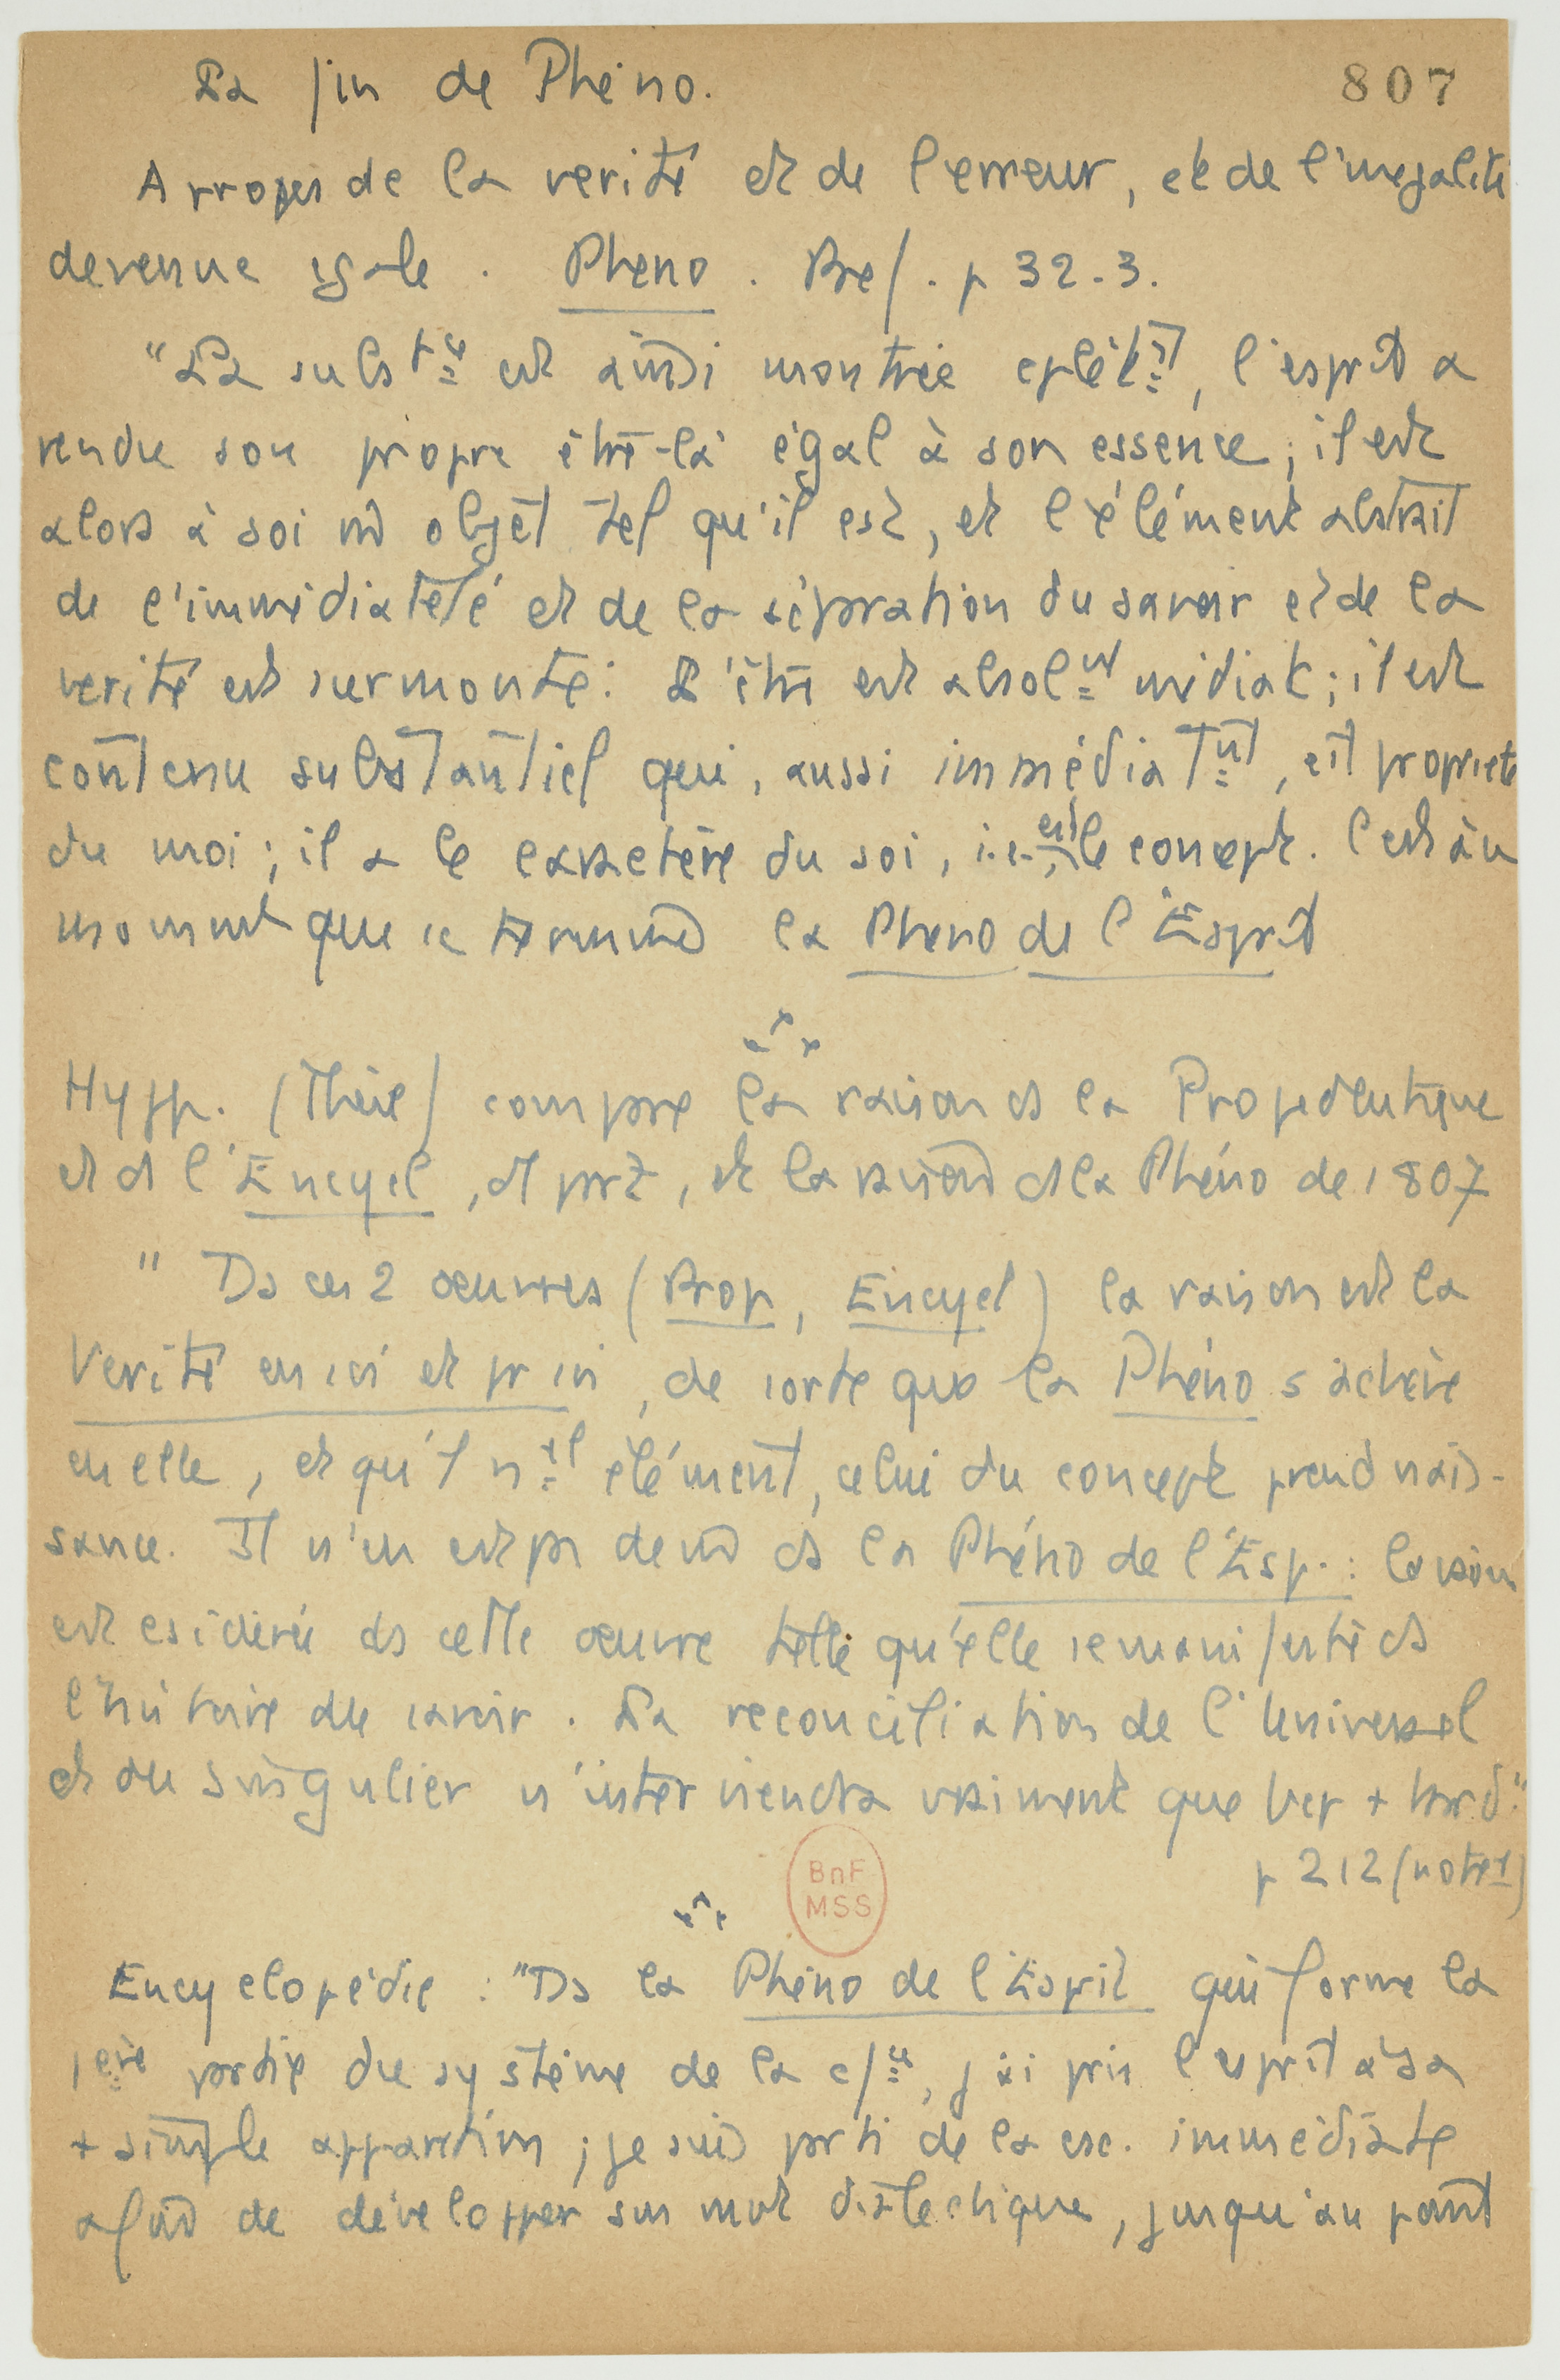 La fin de Phéno.
807
A propos de la verité et de l'erreur, et de l'inégalité
devenue égale. Pheno. Pref. p 32-3.
"La subst ce est ainsi montrée cplèt nt, l'esprit a
rendu son propre être-là égal à son essence; il est
alors à soi m objet tel qu'il est, et l'élément abstrait
de l'immédiateté et de la séparation du savoir et de la
verité est surmonté. L'être est absol nt médiat; il est
contenu substantiel qui, aussi immédiat nt, est propriété
du moi; il a le caractère du soi, i.e. est le concept. C'est à ce
moment que se termine la Pheno de l'Esprit
Hypp. (Thèse) compare la raison ds la Propedeutique
et ds l'Encycl, et la raison ds la Phéno de 1807
" Ds ces 2 oeuvres (Prop, Encycl) la raison est la
Verité en soi et pr soi, de sorte que la Phéno s'achève
en elle, et qu'1 n el élément, celui du concept prend nais-
sance. Il n'en est pas de m ds la Phéno de l'Esp.: la raison
est csidérée ds cette oeuvre telle qu'elle se manifeste ds
l'histoire du savoir. La reconciliation de l'Universel
et du singulier n'interviendra vraiment que bcp + tard."
p 212 (note 1)
BnF
MSS
Encyclopédie : "Ds la Phéno de l'Esprit qui forme la
1ère partie du système de la sc, j'ai pris l'esprit à sa
+ simple apparition; je suis parti de la csc. immédiate
afin de développer son mvt dialectique, jusqu'au point